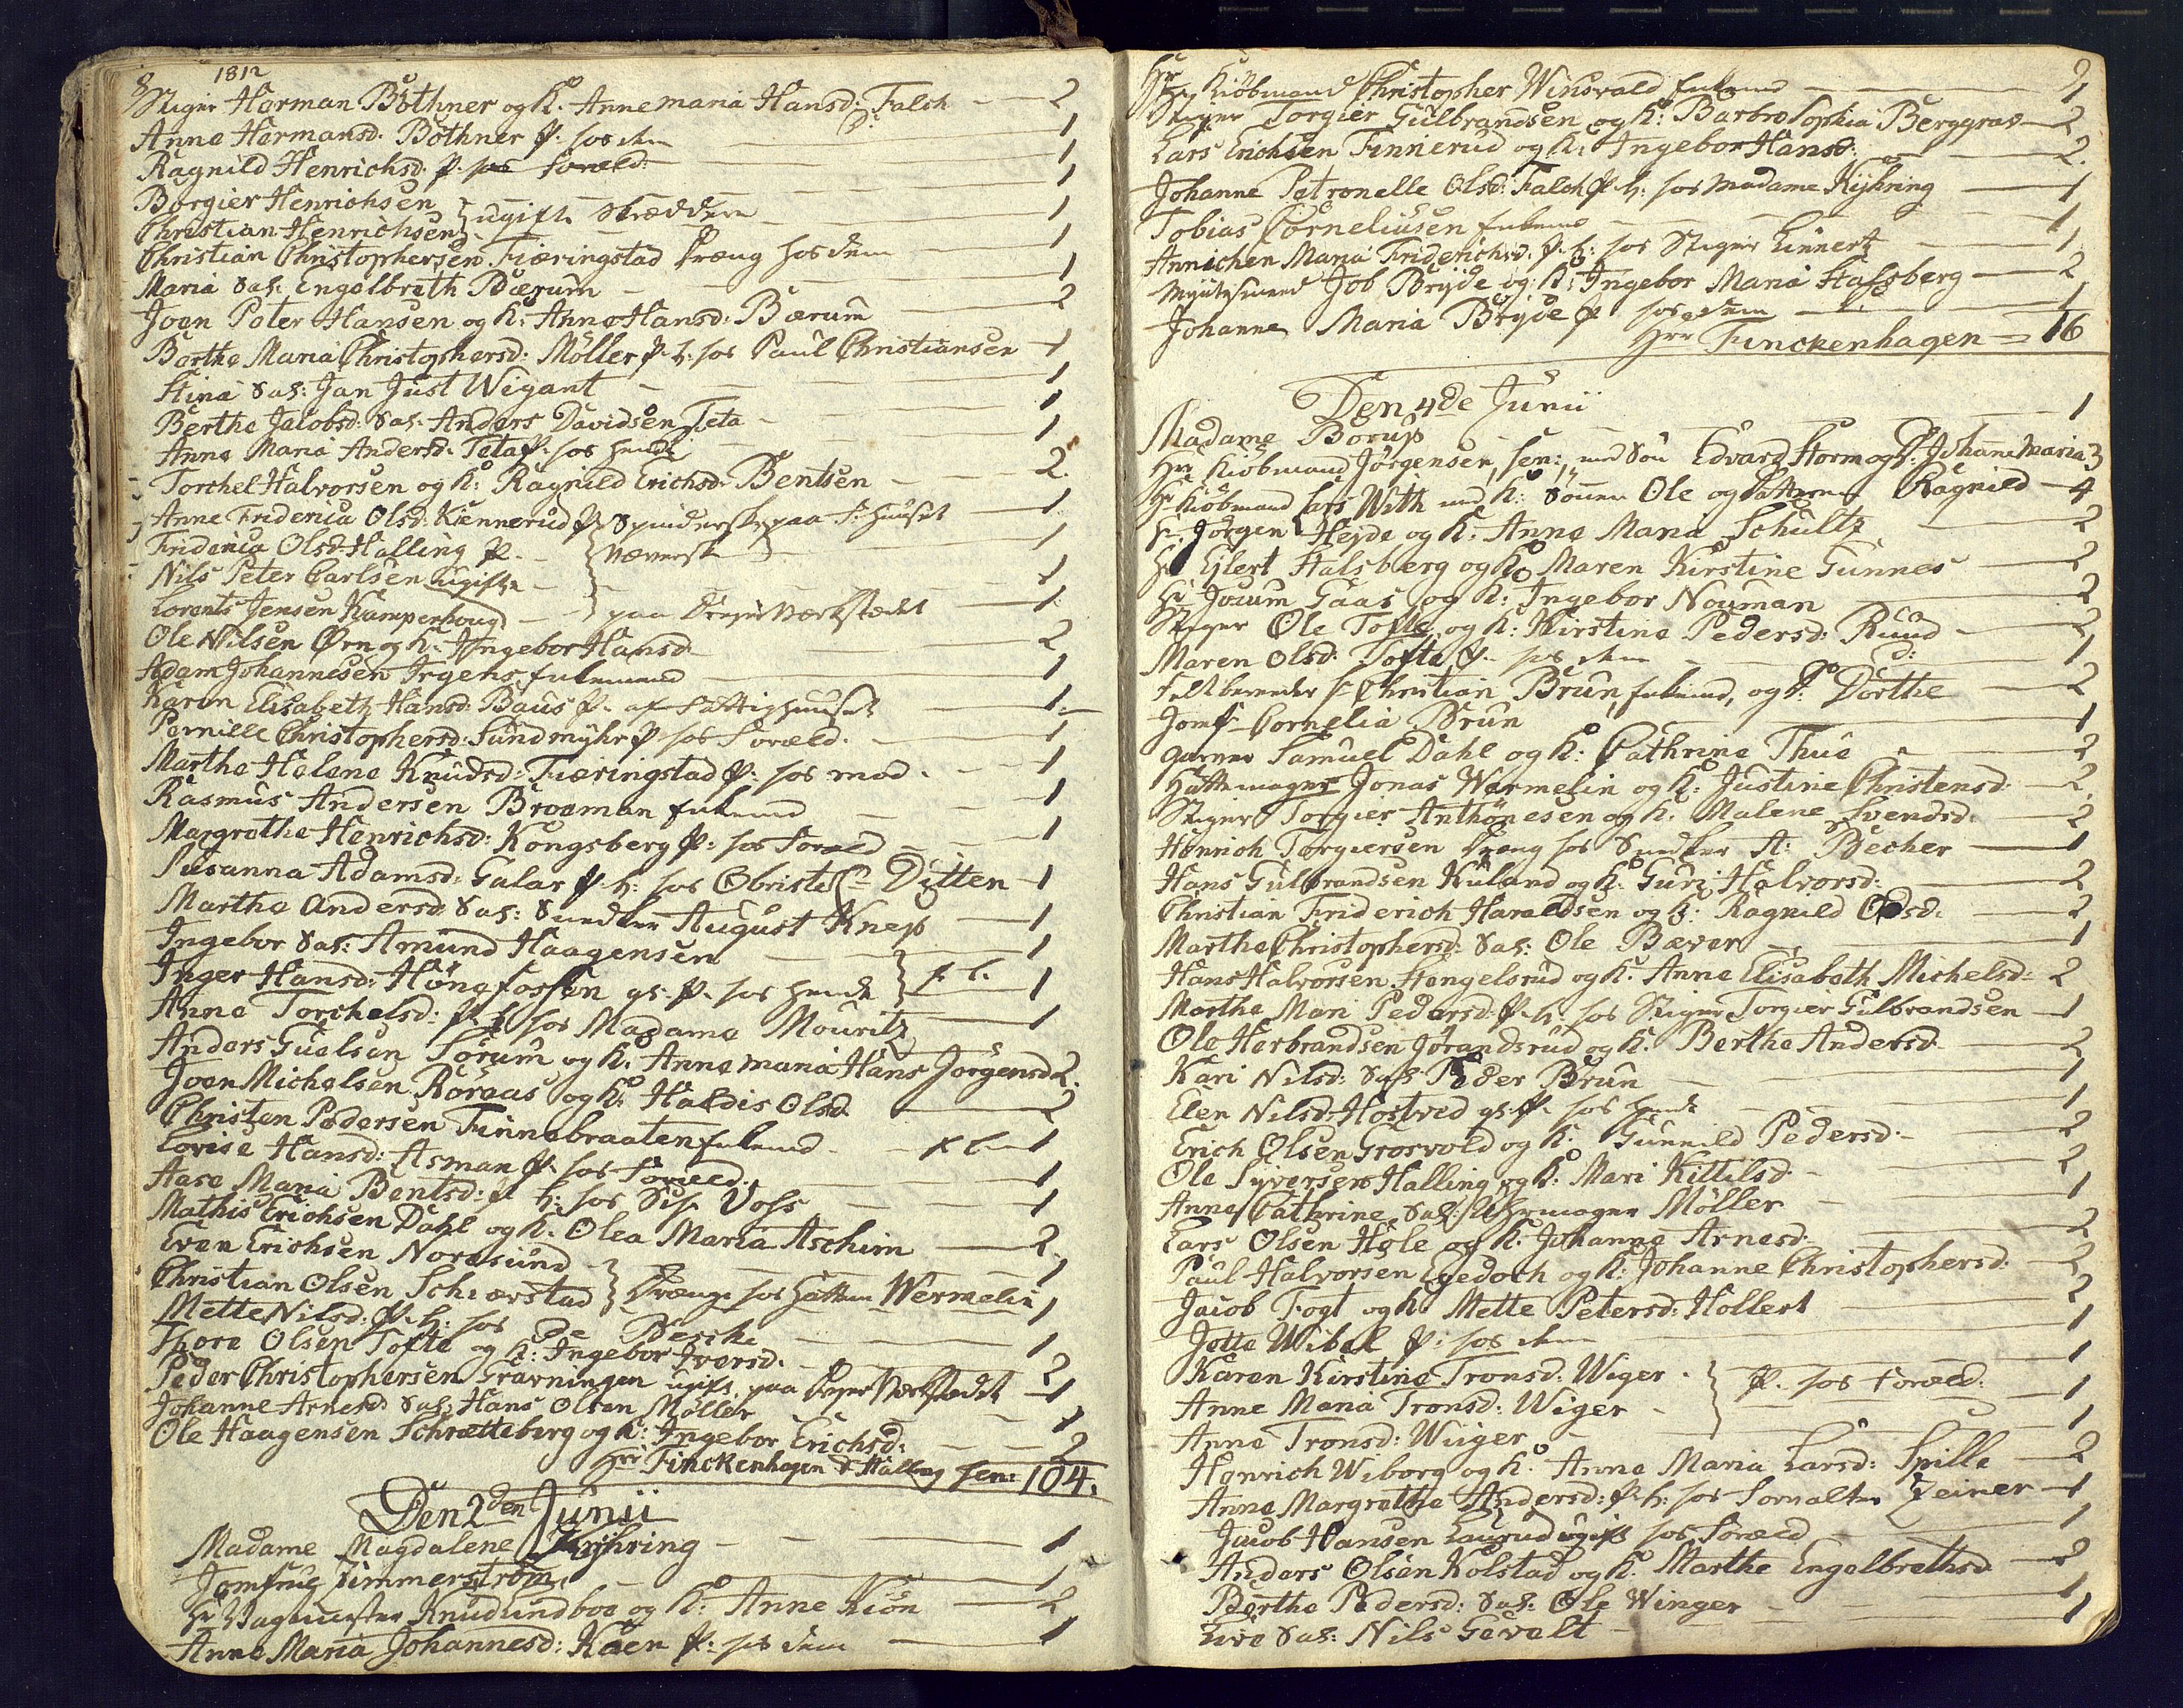 8 1812
Stiger Harman Bøthner og K. Anne maria Hansd: Falch 2
Anne Hermansd. Bøthner P. hos dem 1
Ragnild Henrichsd. P. hos Foræld: 1
Borgier Henrichsen 1
Christian Henrichsen ugifte 1
Christian Christophersen Fiæringstad Dræng hos dem 1
Maria Sal: Engelbreth Bærum 1
Joen Peter Hansen og K: Anne Hansd: Bærum 2
Borthe Maria Christophersd: Møller P. h: hos Paul Christiansen 1
Stina Sal: Jan Just Wigant 1
Berthe Jacobsd. Sal. Anders Davidsen Teta 1
Anne Maria Andersd. Teta P. hos hende 1
Torchel Halvorsen og K: Ragnild Erichsd. Bentsen 2.
Anne Friderica Olsd: Kiennerud P. Spinderske paa F. Huuset 1
Friderica Olsd: Halling P. 1
Nils Peter Carlsen ugift 1
Lorents Jensen Kamperhoug 1
Ole Nilsen Ørn og K. Ingebor Hansd. 2
Adam Johannesen Irgens Enkemand 1
Karen Elisabeth Hansd. Baus P. af Fattighuuset 1.
Pernille Christophersd: Sundmyhr P. hos Foræld. 1
Marthe Helene Knudsd: Fiæringstad P. hos mod. 1
Rasmus Andersen Brooman Enkemd 1
Margrethe Henrichsd: Kongsberg P: hos Foræld 1
Susanna Adamsd: Galar P. h: hos Obriste Ditten 1
Marthe Andersd. Sal: Snedker August Knep 1
Ingebor Sal: Amund Haagensen 1
Inger Hansd: Hønefossen gl. P. hos hende 1
Anne Torchelsd: P. h hos Madame Mouritz 1
Anders Guelsen Sørum og K. Anne maria Hans Jørgensd 2.
Joen Michelsen Røraas og K: Haldis Olsd. 2
Christen Pedersen Finnebraaten Enkemd. 1
Lovise Hansd: Asman P. hos Foræld: 1
Aase Maria Bentsd: P h: hos Voss 1
Mathis Erichsen Dahl og K. Olea Maria Aschim 2.
Even Erichsen Noresund 1
Christian Olsen Schiærstad Drænge hos Hattem Wermelin 1
Mette Nilsd: P. h: hos De Besche 1
Thore Olsen Tofte og K: Ingebor Iversd. 2
Peder Christophersen Gravningen ugift paa 1
Johanne Arnesd. Sal: Hans Olsen Møller 1
Ole Haagensen Schrætteberg og K: Ingebor Erichsd: 2
Hrr Finckenhagen & Halling Sen: 104.
Den 2den Junii
Madame Magdalene Kyhring 1
Jomfrue Timmerstrøm 1
Hr Vagtmester Knud Lindboe og K: Anne Kiøn 2
Anne Maria Johannesd: Kaen P: hos dem 1
Hr Kiøbmand Christopher Winsvald Enkemd 1
Stiger Torgier Gulbrandsen og K: Barbra Sophia Berggrav 2
Lars Erichsen Finnerud og K: Ingebor Hansd: 2.
Johanne Petronelle Olsd: Falch P. h: hos Madame Kyhring 1
Tobias Corneliusen Enkemd 1
Annichen Maria Friderichsd. P. h: hos Stiger Linnertz 1
Job Bryde og K: Ingebor Maria Halsberg 2
Johanne Maria Bryde P hos dem 1
Hrr Finckenhagen = 16
Den 4de Junii
Madame Borup 1
Hr Kiøbmand Jørgensen, sen:, med Søn Edvard Storm og D. Johane Maria 3
Hr Kiøbmand Lars With med K: Sønnen Ole og Datteren Ragnild 4
Hr. Jørgen Hejde og K. Anne Maria Schultz 2
Hr Ejlert Halsberg og K. Maren Kirstine Gunnes 2
Hr Jocum Gaas og K: Ingebor Nouman 2
Stiger Ole Tofte og K: Kirstine Pedersd: Ruud 2
Maren Olsd: Tofte P. hos dem 1
Feldbereder Christian Brun, Enkemd, og D: Dorthe 2
Jomf. Cornelia Brun 1
Garver Samuel Dahl og K: Cathrine Thue 2
Hattemager Jonas Wermelin og K: Justine Christensd. 2.
Stiger Torgier Anthønesen og K. Malene Svendsd. 2
Henrich Torgiersen Dreng hos Snedker A: Becher 1
Hans Gulbrandsen Kuland og K. Guri Halvorsd: 2
Christian Friderich Haraldsen og K: Ragnild Olsd. 2
Marthe Christophersd. Sal: Ole Bæver 1
Hans Halvorsen Hengelsrud og K. Anne Elisabeth Michelsd: 2
Marthe Mari Pedersd: P. h: hos Stiger Torgier Gulbrandsen 1
Ole Herbrandsen Jørandsrud og K. Berthe Andersd. 2
Kari Nilsd: Sal: Peder Brun 1
Elen Nilsd: Hostved gl. P. hos hende 1
Erich Olsen Grosvold og K. Gunnild Pedersd. 2
Ole Syversen Halling og K: Mari Kittilsd. 2
Anne Cathrine Sal: Uhrmager Møller 1
Lars Olsen Hole og K: Johanne Arnesd: 2
Paul Halvorsen Egedoch og K: Johanne Christophersd. 2
Jacob Fogt og K: Mette Petersd: Hollert 2
Jette Wibel P: hos dem 1
Karen Kirstine Tronsd: Wiger 1
Anne Maria Tronsd: Wiger P. hos Foræld: 1
Anne Tronsd: Wiiger 1
Henrich Wiborg og K. Anne Maria Larsd: Spille 2
Anne Margrethe Andersd: P. h: hos Zeiner 1
Jacob Hansen Laurud ugift hos Foræld 1
Anders Olsen Kolstad og K. Marthe Engelbrethsd. 2
Berthe Pedersd: Sal: Ole Winger 1
Live Sal: Nils Gevelt 1